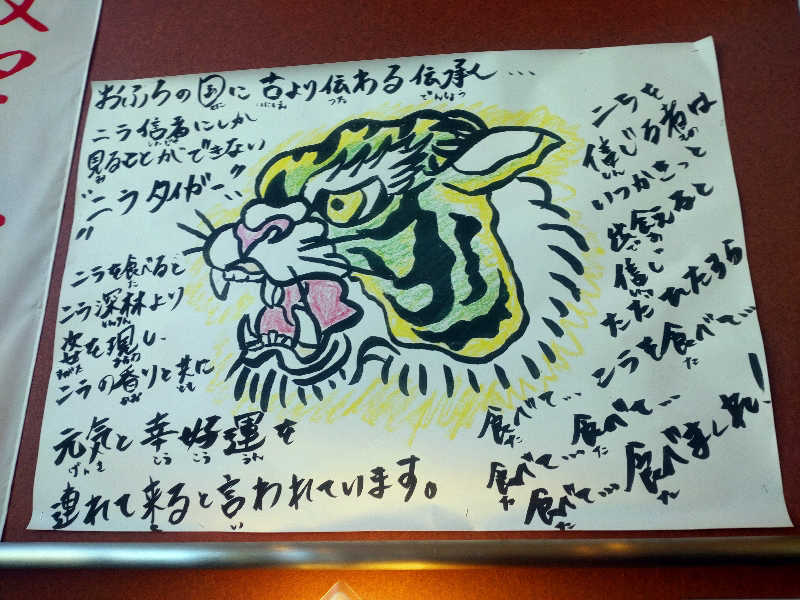 おふろの国に古より伝わる伝承ん…
ニラ信者にしか
見ることができない
"ニラタイガー"…
ニラを食べると
ニラ深林より
姿を現し
ニラの香りと共に
元気と幸好運を
連れて来ると言われています。
ニラを
信じる者は
いつかきっと
出会えると
信じ
ただひたすら
ニラを食べて…
食べて… 食べて…
食べて… 食べて… 食べましれ!